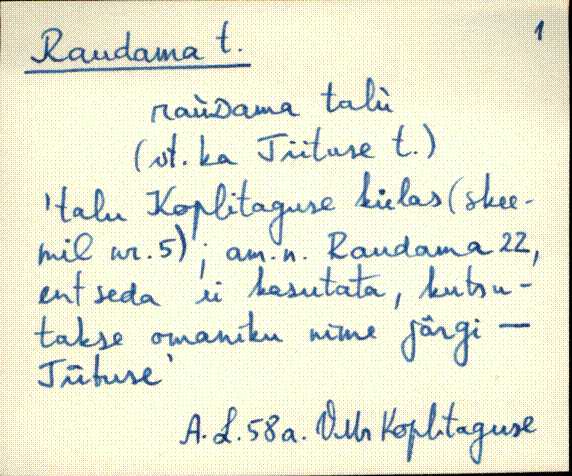 1
Raudama t.
raùᴅama talù
(vt. ka Tiituse t.)
'talu Koplitaguse külas (skee-
mil nr. 5); am. n. Raudama 22,
ent seda ei kasutata, kutsu-
takse omaniku nime järgi —
Tiituse'
A. L. 58 a. VMr Koplitaguse